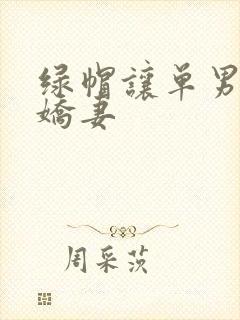 绿帽讓单男
嬌妻
周采茨